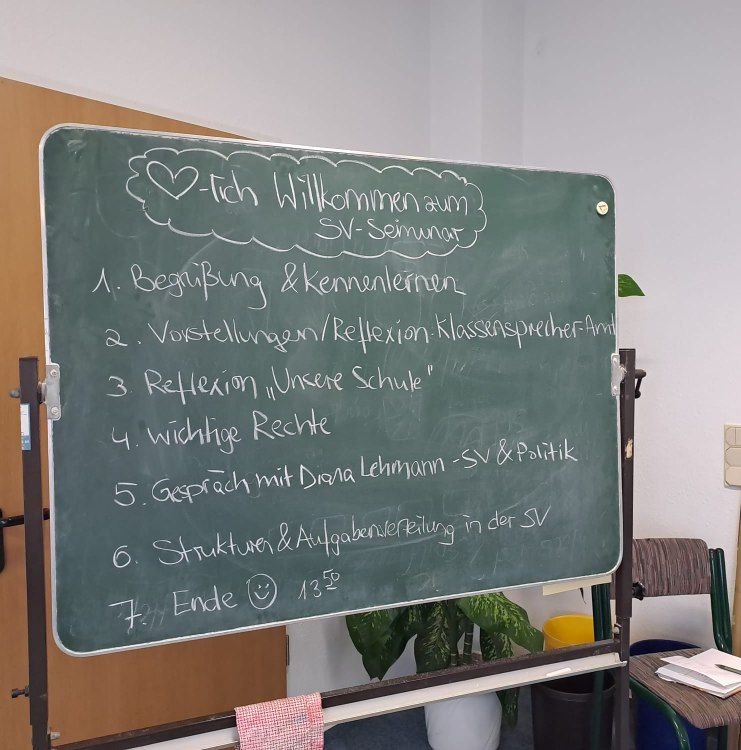 ♡-lich Willkommen zum
SV-Seminar
1. Begrüßung & Kennenlernen
2. Vorstellungen/Reflexion Klassensprecher-Amt
3. Reflexion „Unsere Schule"
4. Wichtige Rechte
5. Gespräch mit Diana Lehmann - SV & Politik
6. Strukturen & Aufgabenverteilung in der SV
7. Ende ☺ 13⁵⁰